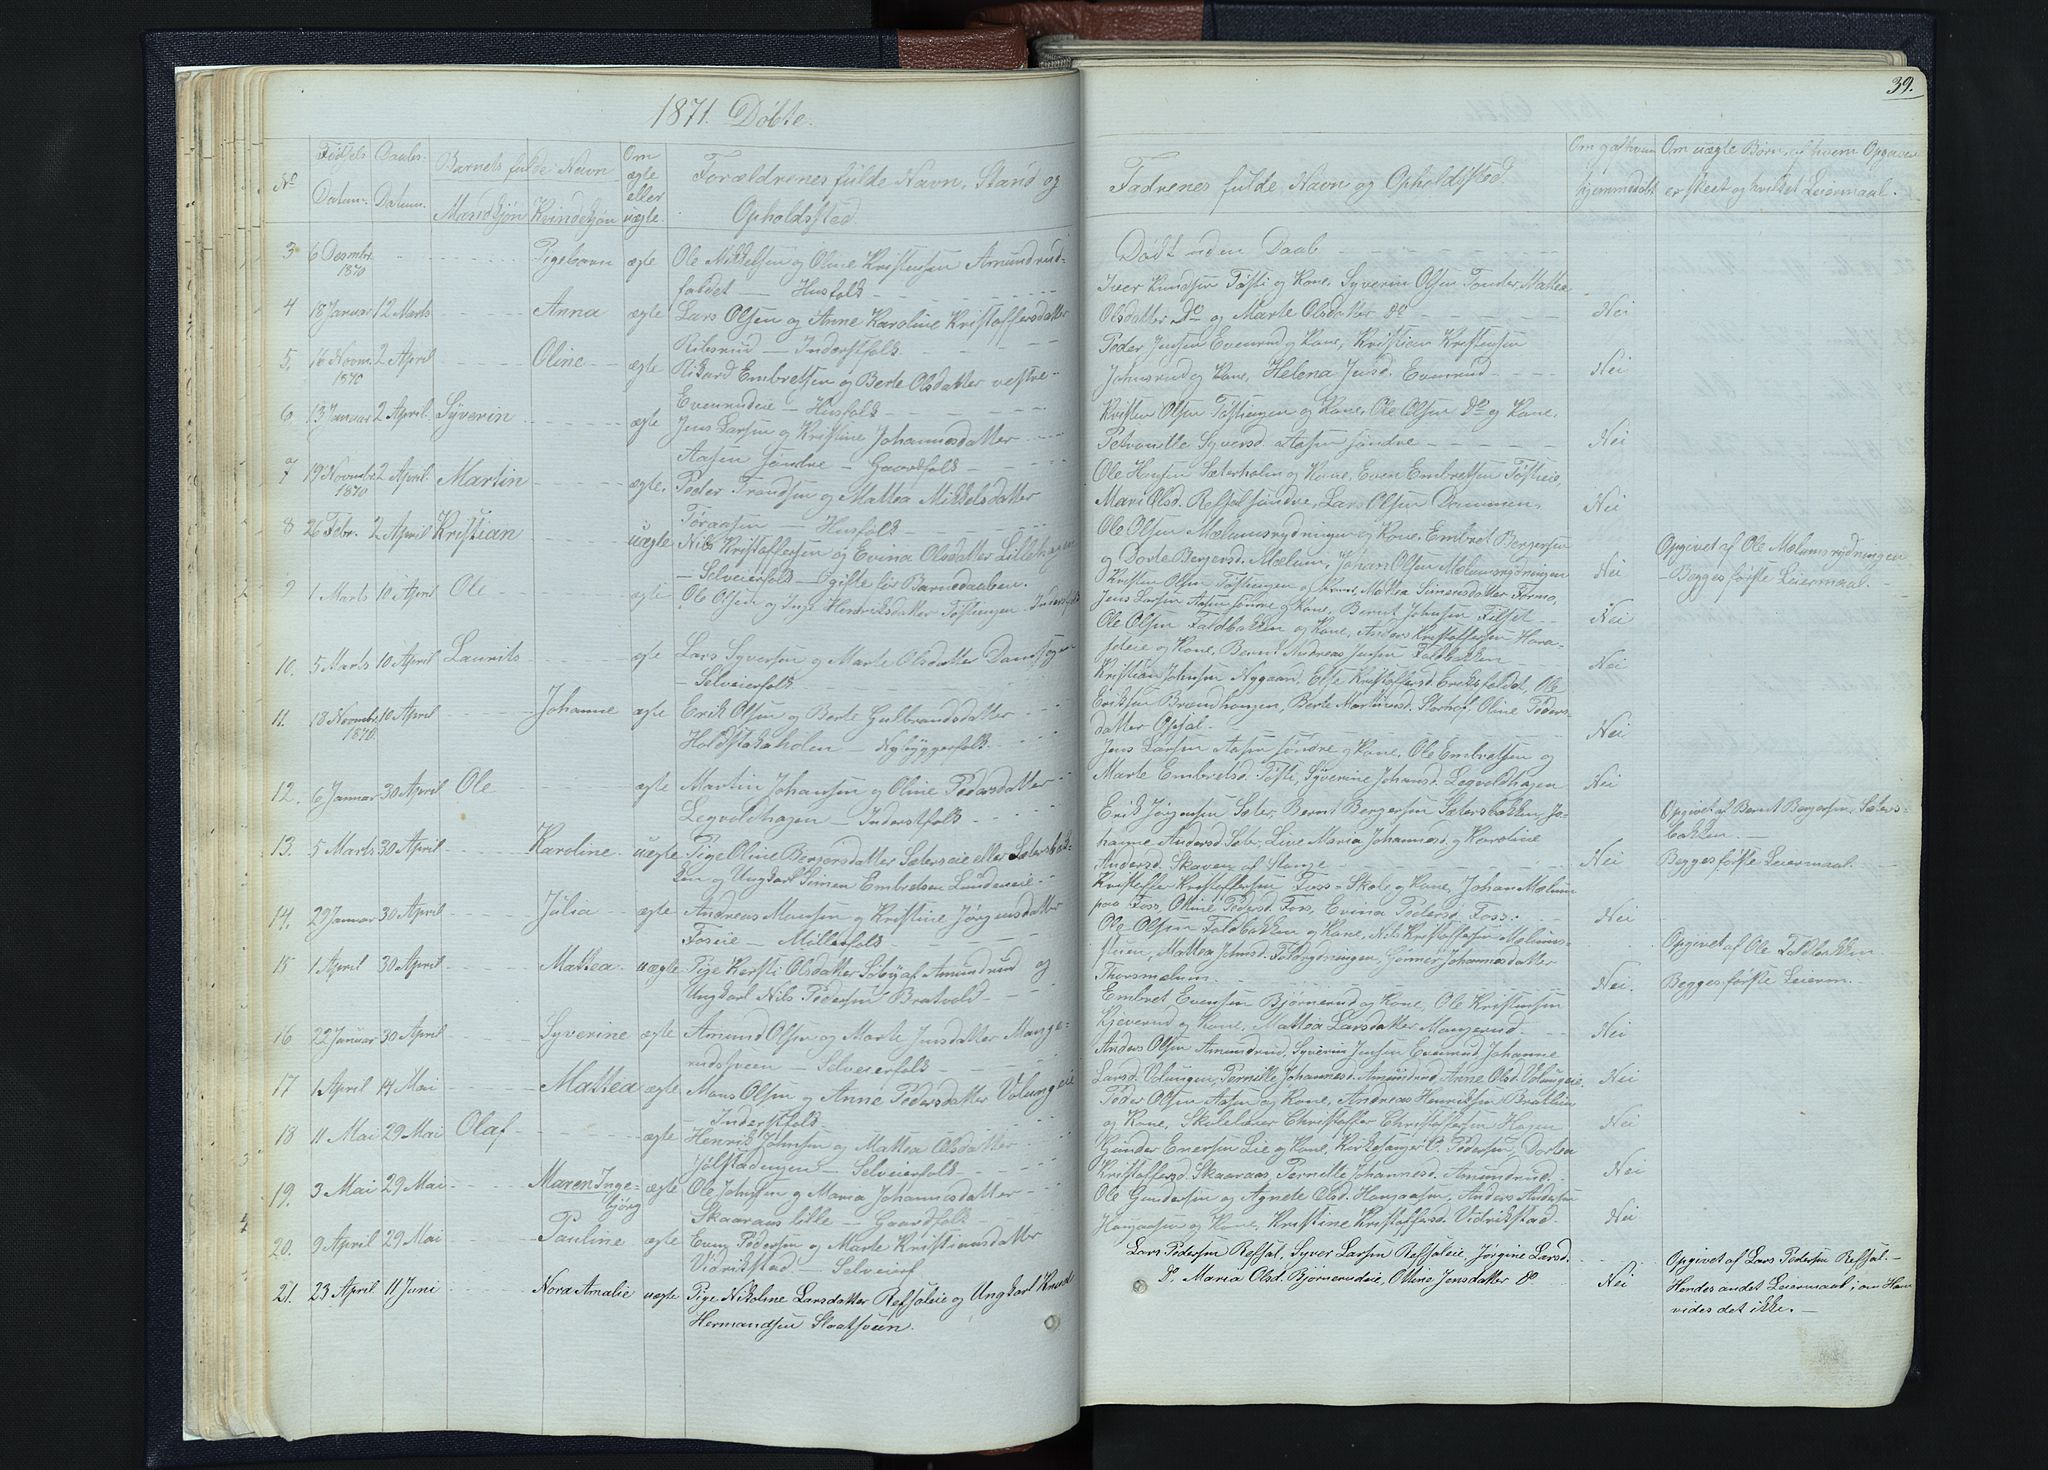 39.
1871. Döbte.
No
Födsels Datum.
Daabs- Datum.
Barnets fulde Navn
Mandkjön
Kvindekjön
Om ægte eller uægte.
Forældrenes fulde Navn, Stand og
Opholdssted
Fadrenes fulde Navn og Opholdssted.
Om Opgivelse er skeet og hvilket Leiermaal.
3 6 Decmbr. 1870 Pigebarn ægte Ole Mikkelsen og Oline Kristensen Amundrud-
faldet — Husfolk
Dödt uden Daab
4 18 Januar 12 Marts Anna ægte Lars Olsen og Anne Karoline Kristoffersdatter
Ribsrud — Inderstfolk
Iver Knudsen Töfti og Kone, Syverin Olsen Tonder, Mattea
Olsdatter Do og Marte Olsdatter do Nei
5. 16 Novm. 1870 2 April Oline ægte Rikard Embretsen og Berte Olsdatter vestre-
Evenrudeie — Husfolk
Peder Jensen Evenrud og Kone, Kristian Kristensen
Johnsrud og Kone, Helena Jensd. Evenrud Nei
6 13 Januar 2 April Syverin ægte Jens Larsen og Kristine Johannesdatter
Aasen söndre — Gaardfolk
Kristen Olsen Töftingen og Kone, Ole Olsen Do og Kone,
Petronille Syversd. Aasen söndre Nei
7 19 Novmbr 1870 2 April Martin ægte. Peder Trondsen og Mattea Mikkelsdatter
Töraasen — Husfolk
Ole Hansen Sæterholm og Kone, Even Embretsen Töftieie,
Mari Olsd. Refsalsöndre, Lars Olsen Dammen, Nei
8 26 Febr. 2 April Kristian uægte Nils Kristoffersen og Evina Olsdatter Lillehagen
— Selveierfolk — Ogifte ved Barnedaaben.
Ole Olsen Mælumsrydningen og Kone, Embret Bergersen
og Dorte Bergersd. Mælum, Johan Olsen Mælumsrydningen Nei
Opgivet af Ole Mælumsrydningen
Begges förste Leiermaal.
9 1 Marts 10 April Ole ægte Ole Olsen og Inge Henriksdatter Töftingen — Inderstfolk
Kristen Olsen Töftingen og Kone, Mattea Simensdatter Formo,
Jens Larsen Aasen söndre og Kone, Bernt Johnsen Filset Nei
10. 5 Marts 10 April Laurits ægte Lars Syversen og Marte Olsdatter
— Selveierfolk
Ole Olsen Faldbakken og Kone, Anders Kristoffersen Hara-
og Kone, Bernt Andreas Jensen Faldbakken Nei
11. 18 Novmbr. 1870. 10 April Johanne ægte Erik Olsen og Berte Gulbrandsdatter
Holdstakaholen — Nybyggerfolk
Kristian Johnsen Nygaard, Else Kristoffersd. Eriksfaldet, Ole
Eriksen Brændhaugen, Berte Martinusd. Storhof, Oline Peders-
datter Opsal. Nei
12. 6 Januar 30 April Ole ægte Martin Johansen og Oline Pedersdatter
Legvoldhagen — Inderstfolk
Jens Larsen Aasen söndre og Kone, Ole Embretsen og
Marte Embretsd. Töfti, Syverine Johansd. Legvoldhagen Nei
13. 5 Marts 30 April Karoline uægte Pige Oline Bergersdatter Sæterseie eller Sætersbak-
ken og Ungkarl Simen Embretsen Lundeneie
Erik Jörgensen Sæter, Bernt Bergersen Sætersbakken, Jo-
hanne Andersd Sæter, Live Maria Johannesd. og Karoline
Andersd. Skaven af Stange Nei
Opgivet af Bernt Bergersen, Sæters-
bakken. —
Begges förste Leiermaal.
14. 29 Januar 30 April Julia ægte Andreas Monsen og Kristine Jörgensdatter
Foseie — Möllerfolk
Kristoffer Kristoffersen Foss-Skole og Kone, Johan Mælum
paa Foss, Oline Pedersd. Foss, Evina Pedersd. Foss. Nei
15 1 April 30 April Mattea. uægte Pige Kersti Olsdatter Söby af Amundrud og
Ungkarl Nils Pedersen Bratvold
Ole Olsen Faldbakken og Kone, Nils Kristoffersen Mælums-
eien, Mattea Johnsd. Faldrydningen, Gunner Johannesdatter
Thorsmælum. Nei.
Opgivet af Ole Faldbakken
Begges förste Leierm.
16 22 Januar 30 April Syverine ægte Amund Olsen og Marte Jensdatter Mange-
rudsveen — Selveierfolk
Embret Evensen Björnerud og Kone, Ole Kristensen
Kjeverud og Kone, Mattea Larsdatter Mangerud Nei
17 1 April 14 Mai Mattea ægte Mons Olsen og Anne Pedersdatter Volungeie
Inderstfolk
Anders Olsen Amundrud, Syverin Jensen Evenrud, Johanne
Larsd. Volungen, Pernille Johannesd. Amundrud, Anne Olsd. Volungeie, Nei
18 11 Mai 29 Mai Olaf ægte Henrik Johnsen og Mattea Olsdatter
Jölstadengen — Selveierfolk
Peder Olsen Aasen og Kone, Andreas Henriksen Bratlien
og Kone, Skolelærer Christoffer Christoffersen Hagen Nei
19. 3 Mai 29 Mai Maren Inge-
björg ægte Ole Johnsen og Maria Johannesdatter
Skaaraas lille — Gaardfolk
Gunder Enersen Lie og Kone, Kirkesanger C. Pedersen, Dortea
Kristoffersd. Skaaraas, Pernille Johannesd. Amundrud. Nei
20. 9 April 29 Mai Pauline ægte Even Pedersen og Marte Kristiansdatter
Vidrikstad — Selveierf
Ole Gundersen og Agnete Olsd. Hangaasen, Anders Andersen
Hangaasen og Kone, Kristine Kristoffersd. Vidrikstad. Nei
21. 23 April 11 Juni Nora Amalie uægte Pige Nikoline Larsdatter Refsaleie og Ungkarl Knud
Hermandsen Slaatsveen.
Lars Pedersen Refsal, Syver Larsen Refsaleie, Jörgine Larsd.
Do. Maria Olsd. Björnerudeie, Oline Jensdatter do Nei
Opgivet af Lars Pedersen Refsal. —
Hendes andet Leiermaal, om Ham
vides det ikke. —